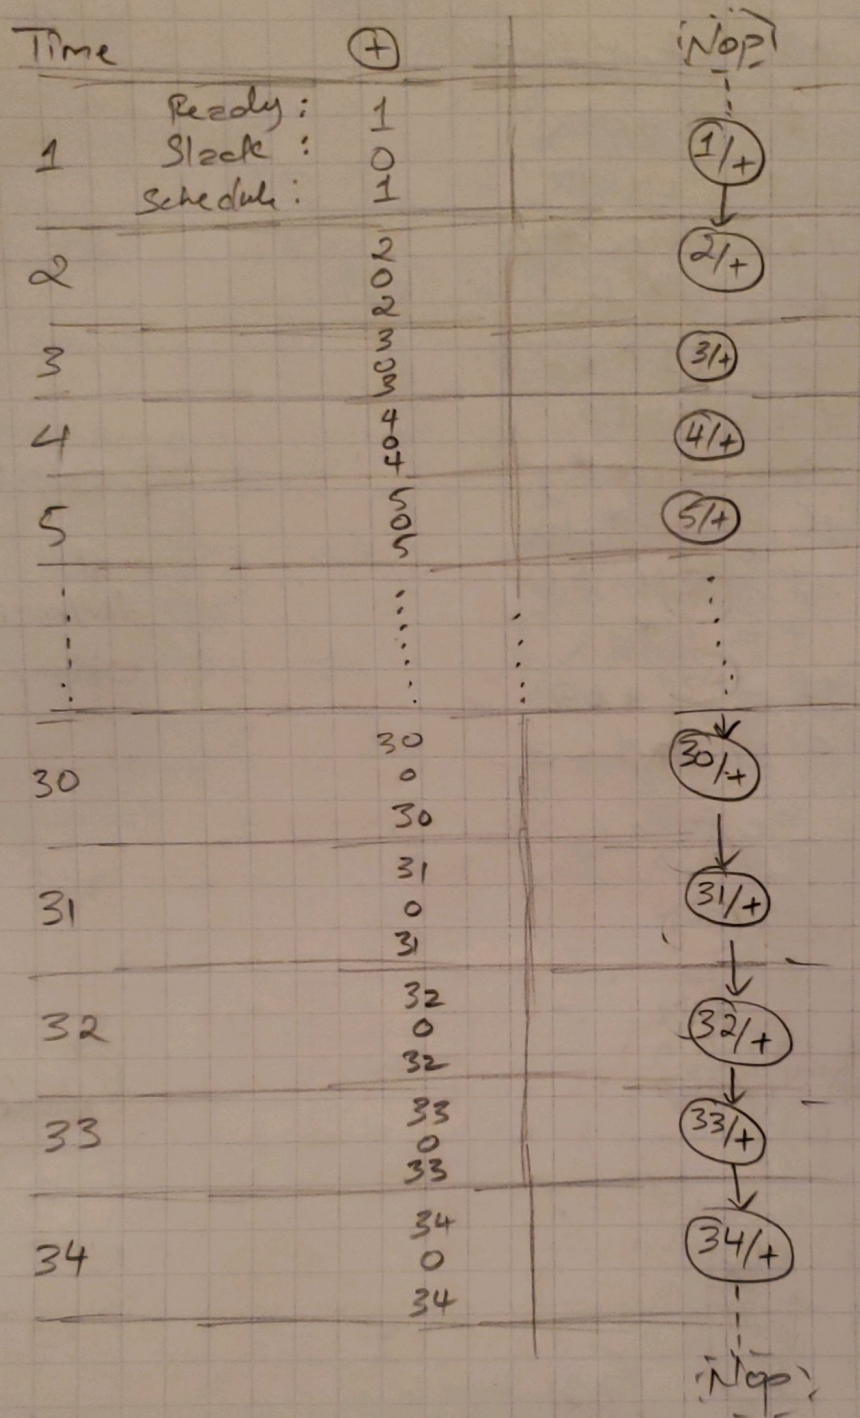 Time + Nop
Ready: 1
1 Slack: 0 1/+
Schedule: 1
2
2 0 2/+
2
3
3 0 3/+
3
4
4 0 4/+
4
5
5 0 5/+
5
30
30 0 30/+
30
31
31 0 31/+
31
32
32 0 32/+
32
33
33 0 33/+
33
34
34 0 34/+
34
Nop